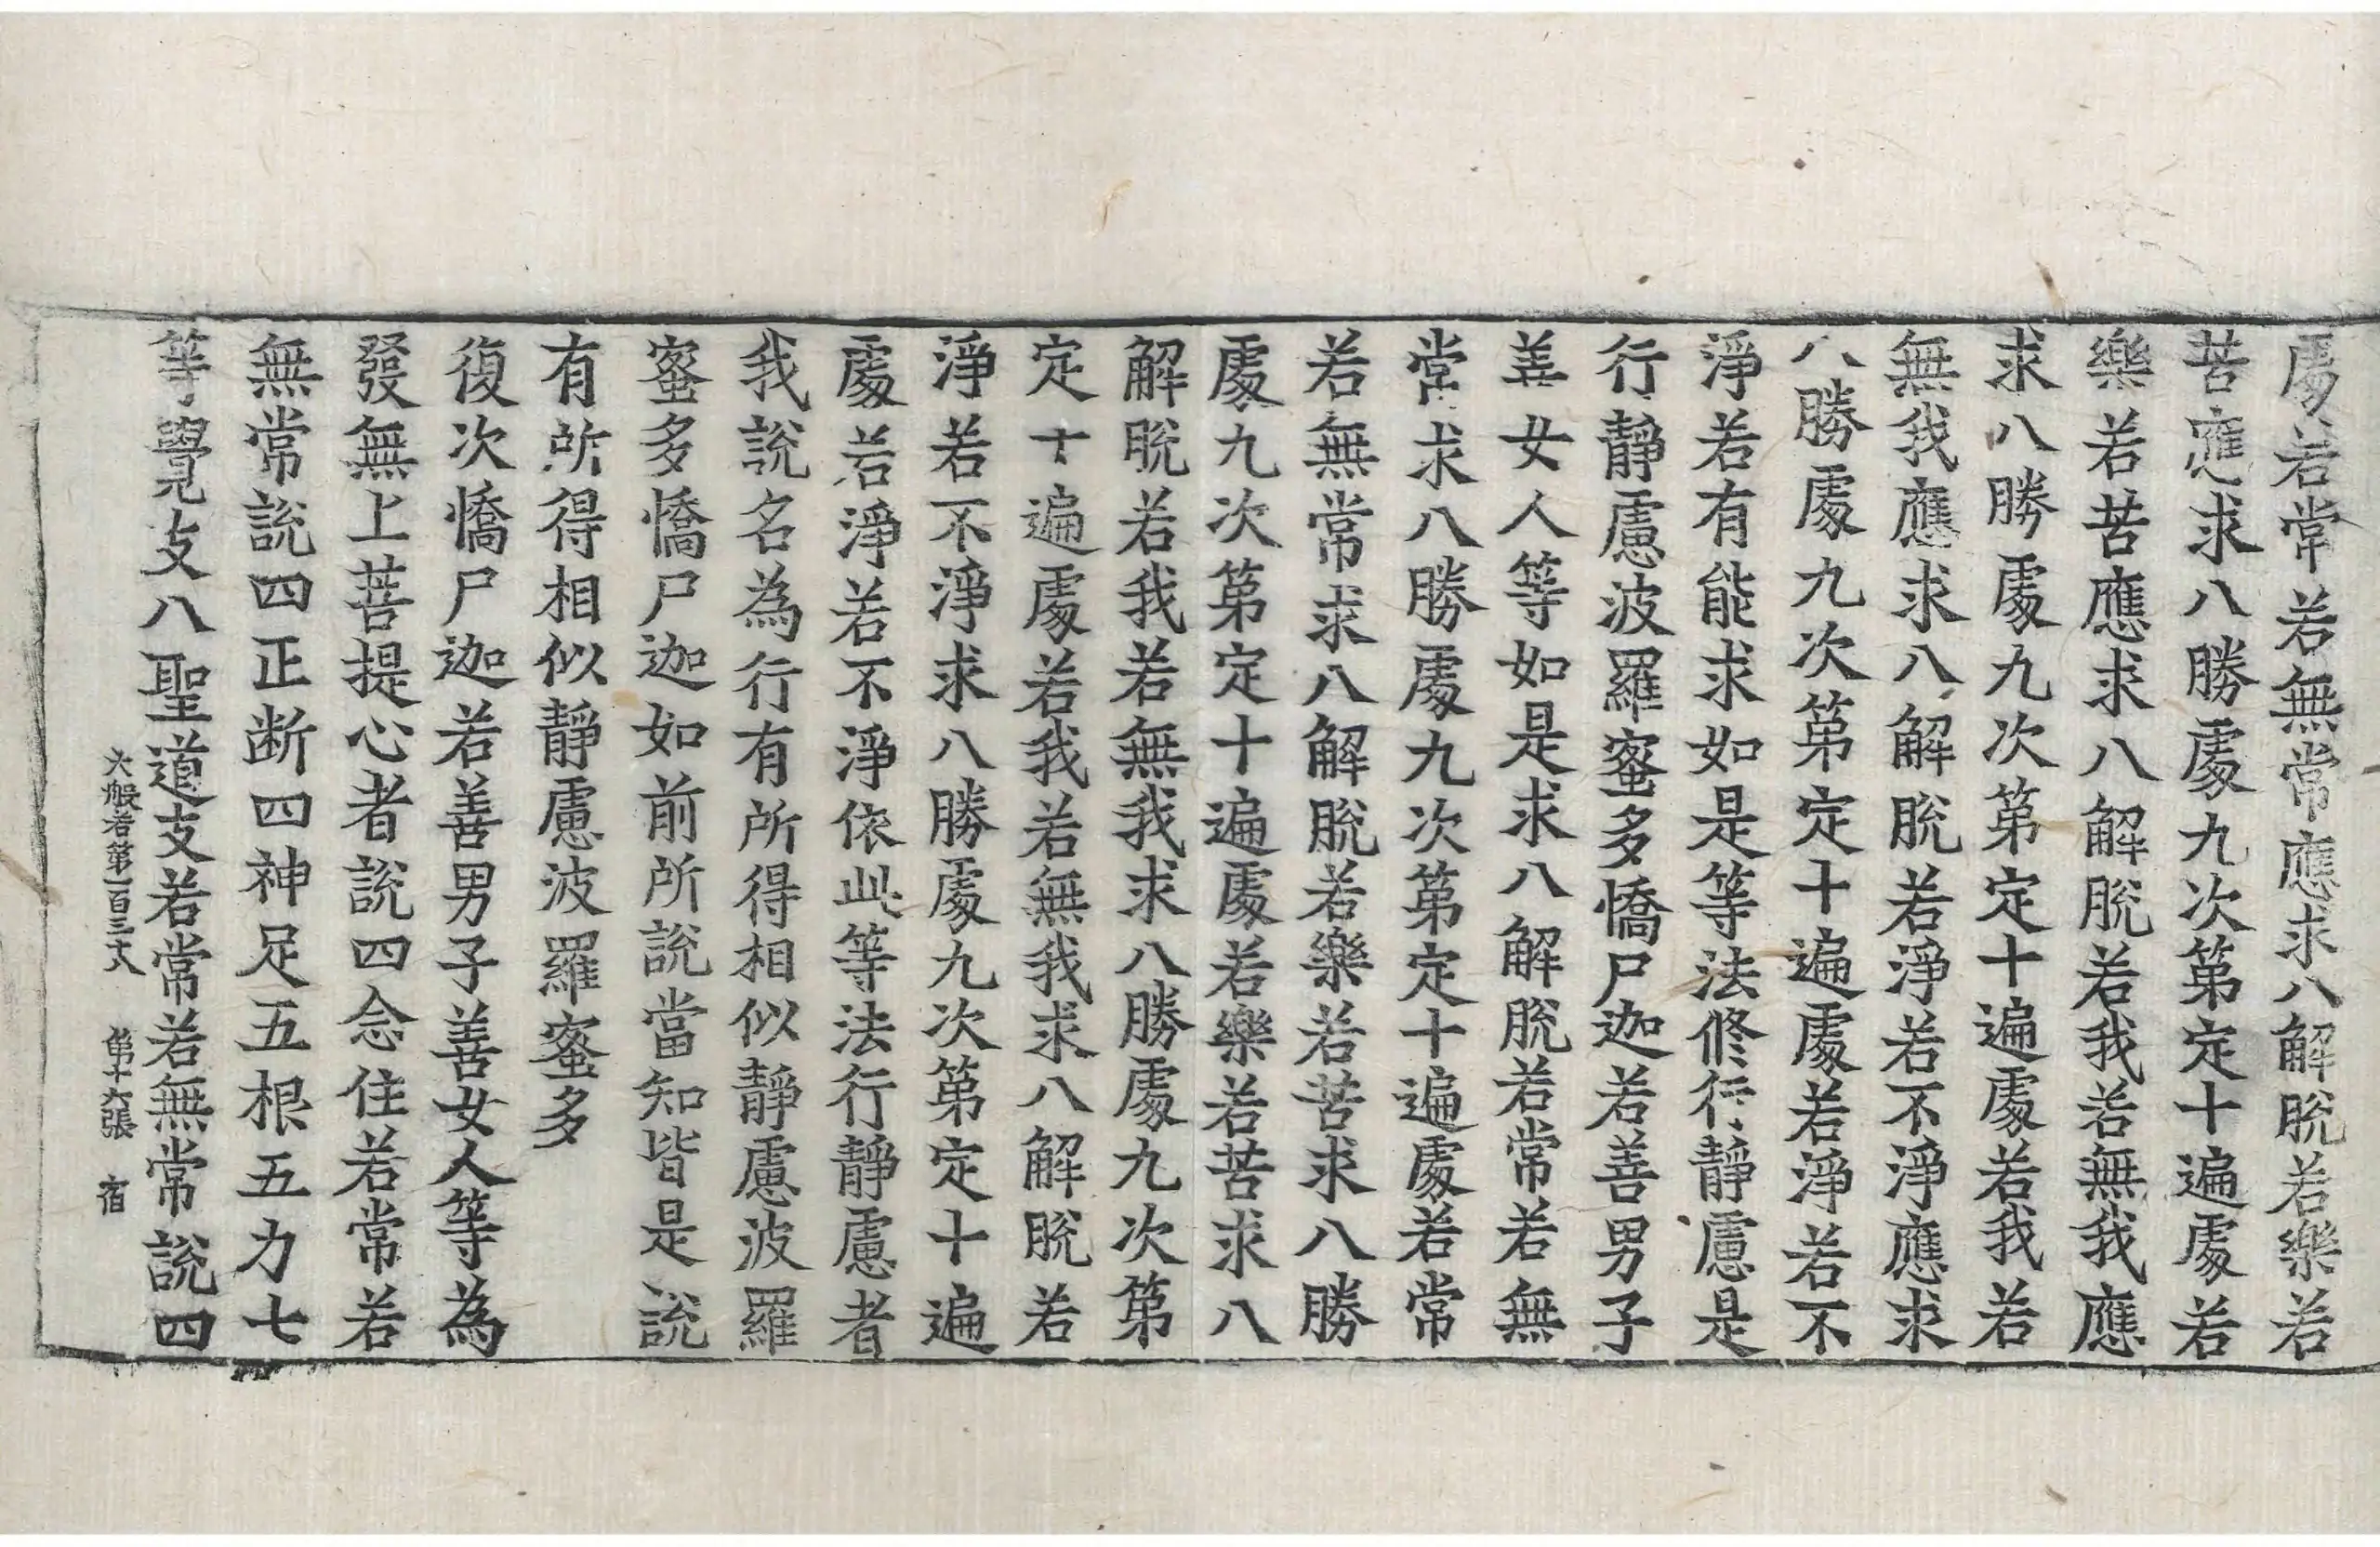 處若常若無常應求八解脫若樂若
苦應求八勝處九次第定十遍處若
樂若苦應求八解脫若我若無我應
求八勝處九次第定十遍處若我若
無我應求八解脫若淨若不淨應求
八勝處九次第定十遍處若淨若不
淨若有能求如是等法修行靜慮是
行靜慮波羅蜜多憍尸迦若善男子
善女人等如是求八解脫若常若無
常求八勝處九次第定十遍處若常
若無常求八解脫若樂若苦求八勝
處九次第定十遍處若樂若苦求八
解脫若我若無我求八勝處九次第
定十遍處若我若無我求八解脫若
淨若不淨求八勝處九次第定十遍
處若淨若不淨依此等法行靜慮者
我說名為行有所得相似靜慮波羅
蜜多憍尸迦如前所說當知皆是說
有所得相似靜慮波羅蜜多
復次憍尸迦若善男子善女人等為
發無上菩提心者說四念住若常若
無常說四正断四神足五根五力七
等覺支八聖道支若常若無常說四
大般若第一百三十八 第十六張 宿